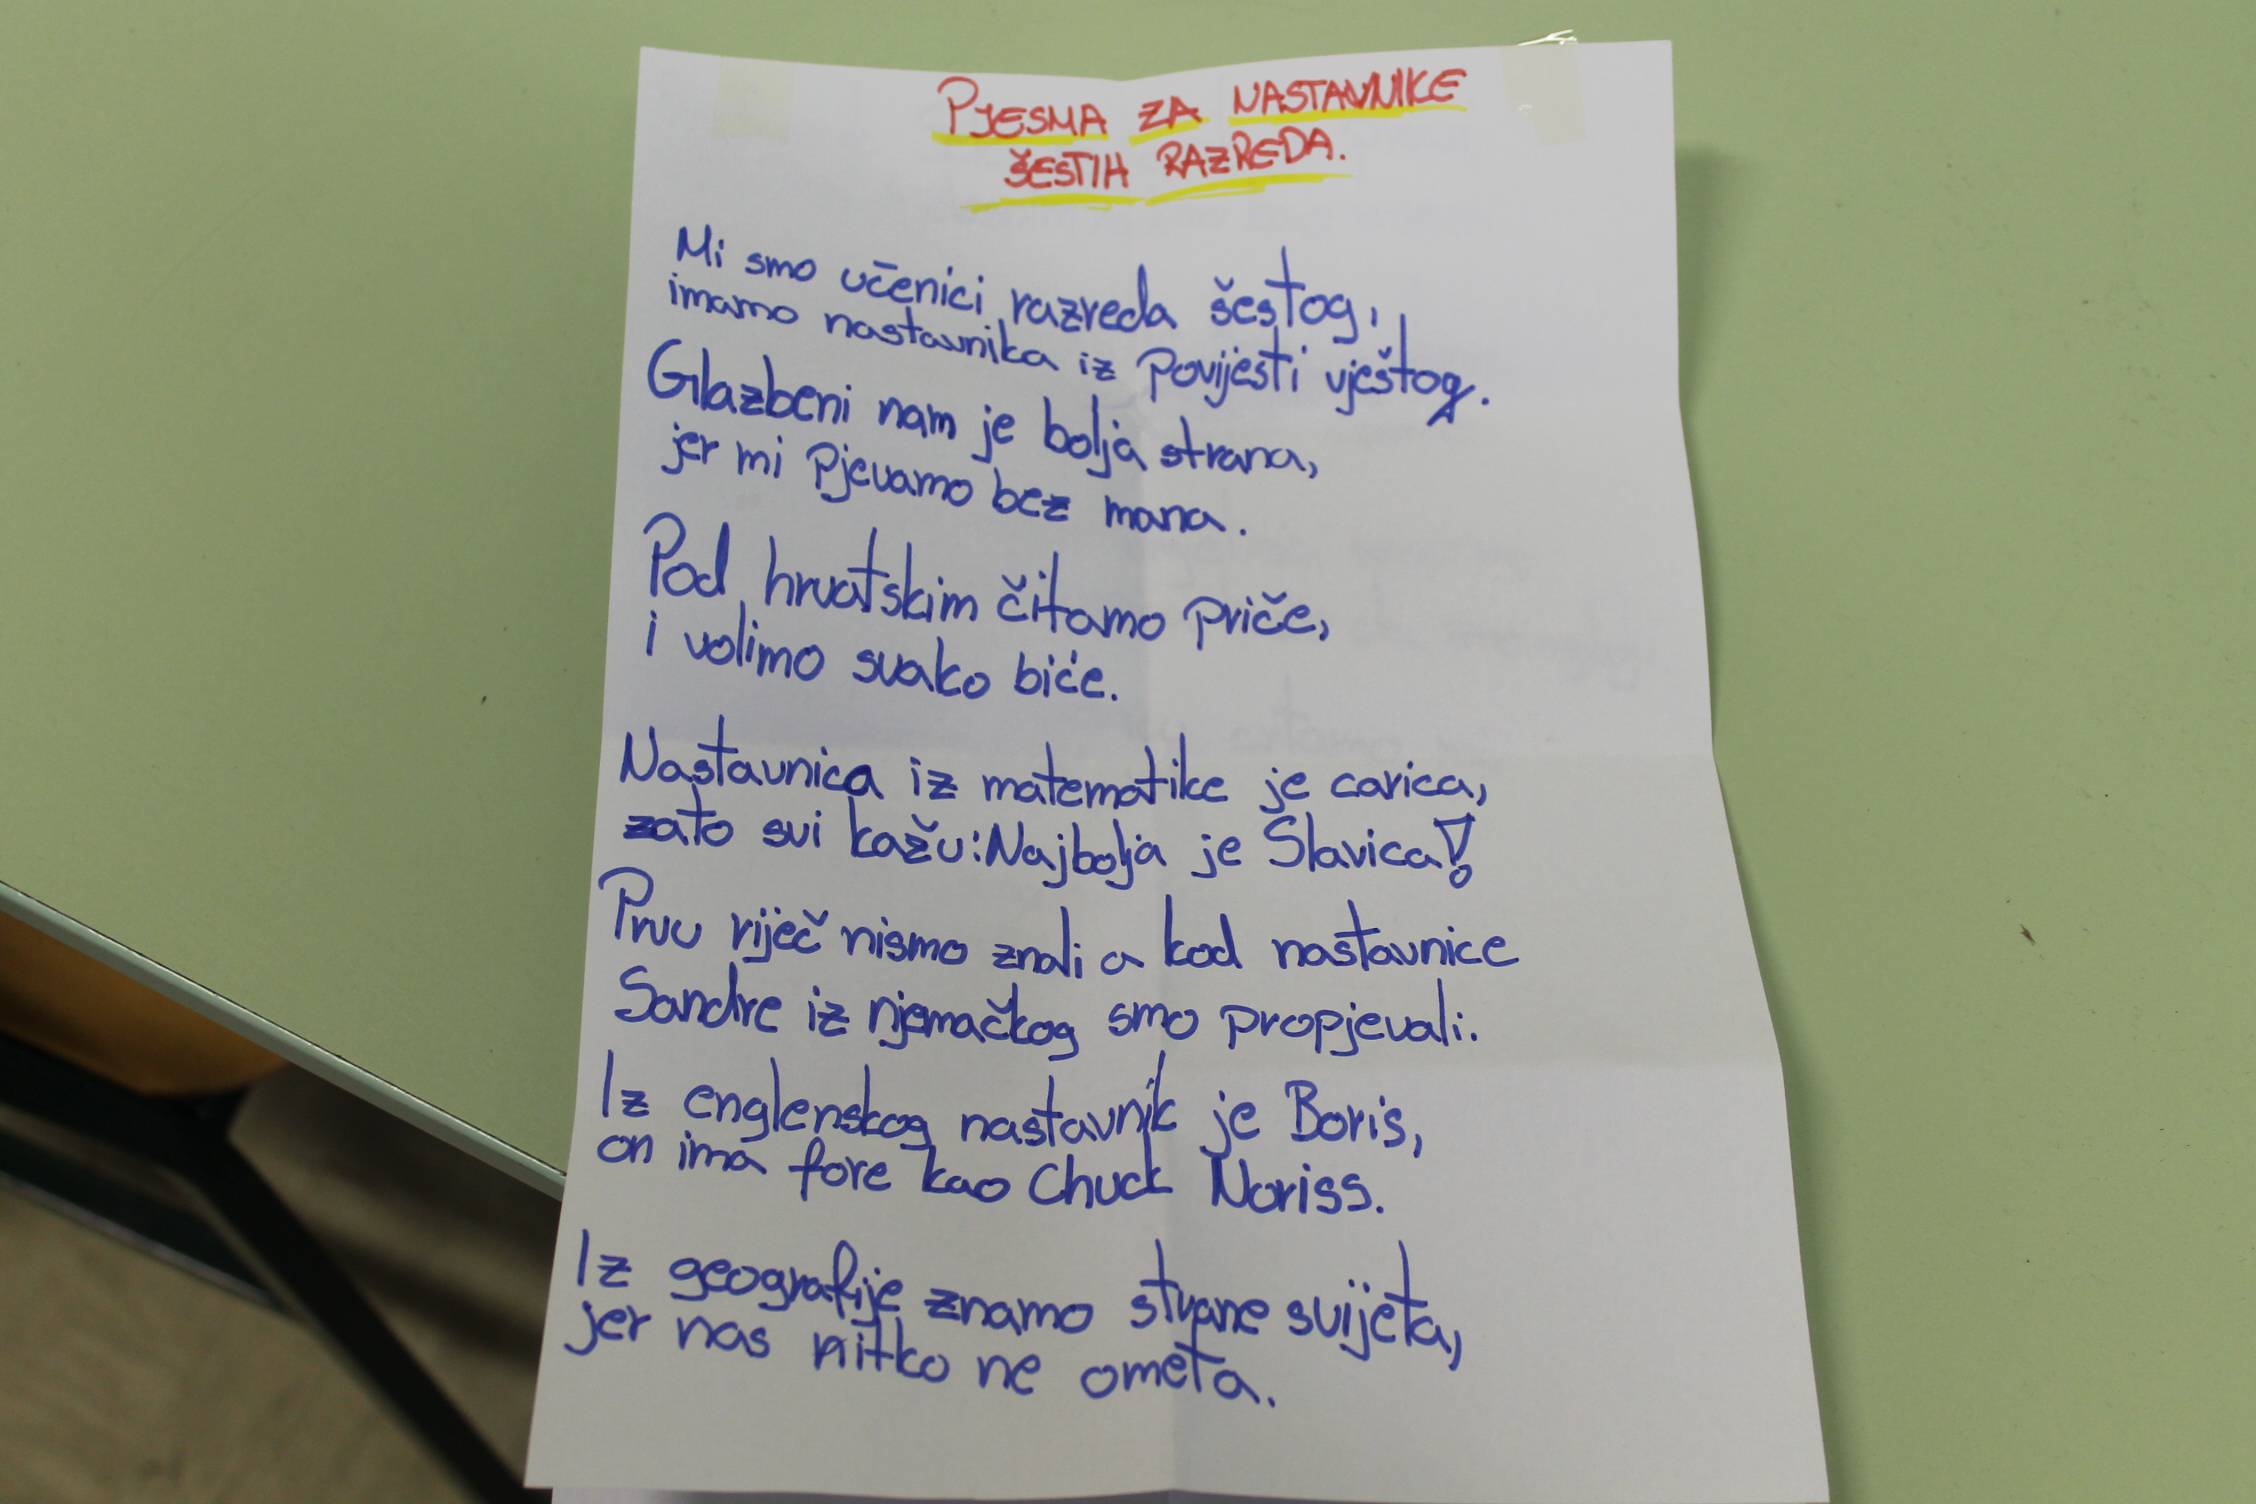 PJESMA ZA NASTAVNIKE
ŠESTIH RAZREDA.
Mi smo učenici razreda šestog,
imamo nastavnika iz Povijesti vještog.
Glazbeni nam je bolja strana,
jer mi pjevamo bez mana.
Pod hrvatskim čitamo priče,
i volimo svako biće.
Nastavnica iz matematike je carica,
zato svi kažu: Najbolja je Slavica!
Prvu riječ nismo znali a kod nastavnice
Sandre iz njemačkog smo propjevali.
Iz englenskog nastavnik je Boris,
on ima fore kao Chuck Noriss.
Iz geografije znamo strane svijeta,
jer nas nitko ne ometa.